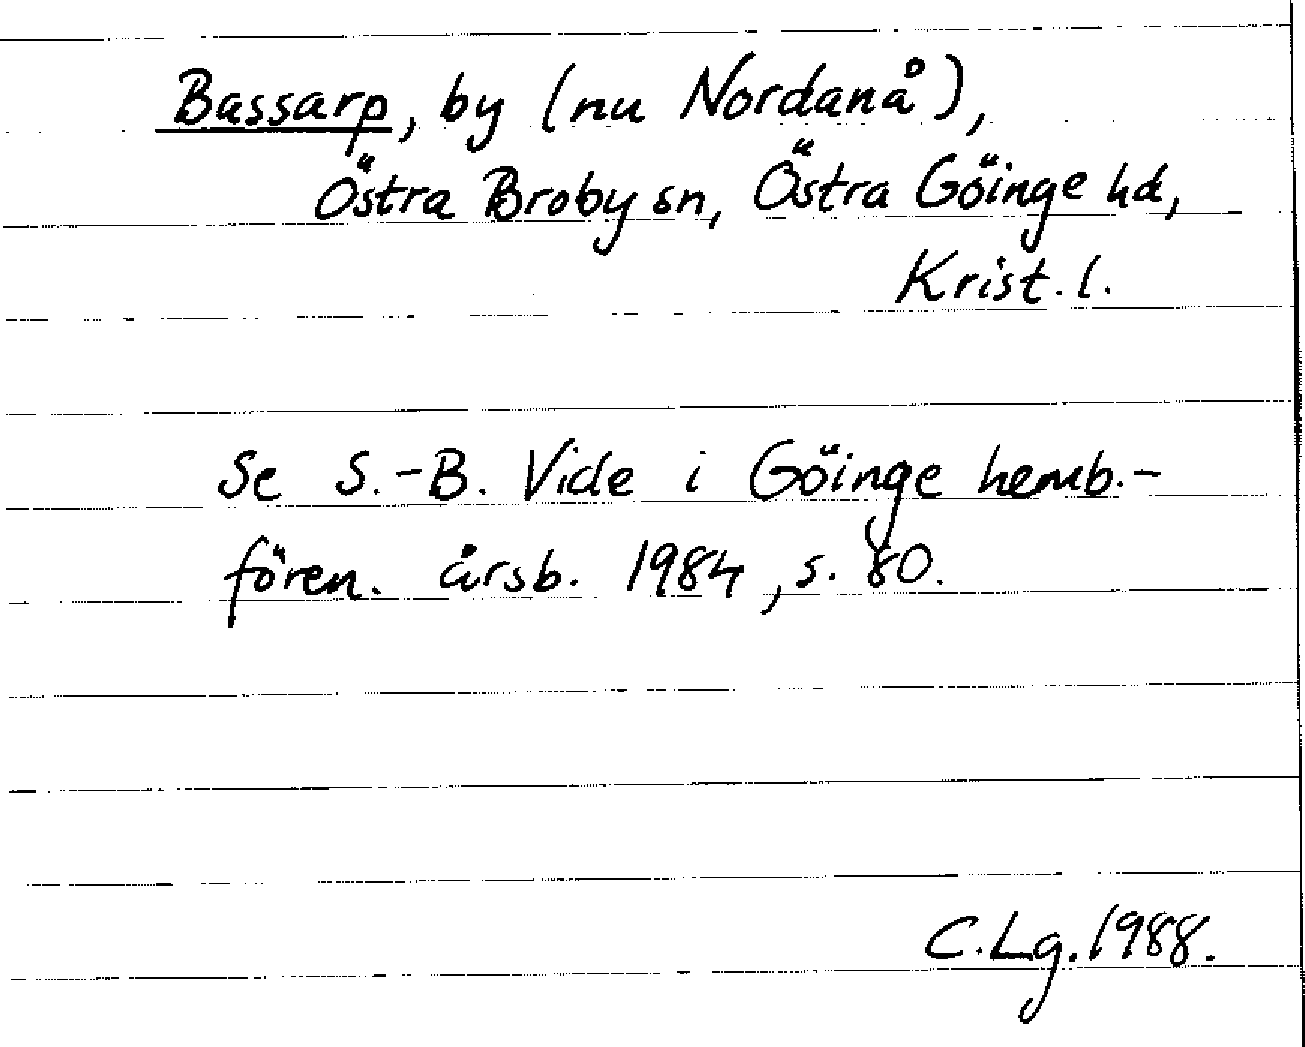 Bassarp, by (nu Nordanå),
Östra Broby sn, Östra Göinge hd,
Krist. l.
Se S.-B. Vide i Göinge hemb.-
fören. årsb. 1984, s. 80.
C.Lg. 1988.